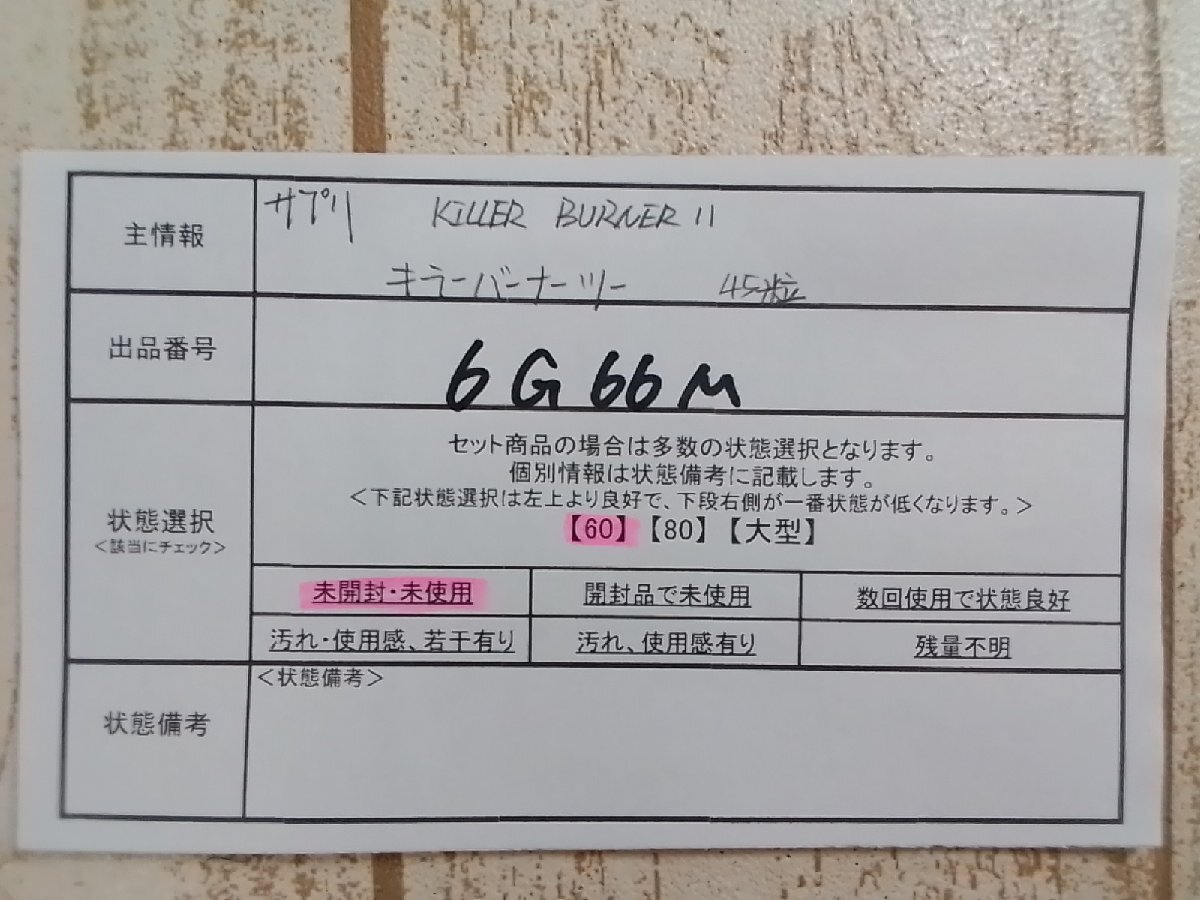 主情報
サプリ KILLER BURNER II
キラーバーナーツー 45粒
出品番号
6G66M
状態選択
<該当にチェック>
セット商品の場合は多数の状態選択となります。
個別情報は状態備考に記載します。
<下記状態選択は左上より良好で、下段右側が一番状態が低くなります。>
【60】【80】【大型】
未開封・未使用 開封品で未使用 数回使用で状態良好
汚れ・使用感、若干有り 汚れ、使用感有り 残量不明
状態備考
<状態備考>